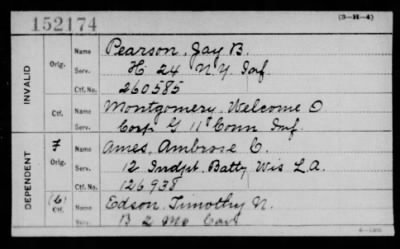 152174
(3-H-4)
INVALID
Orig. Name Pearson, Jay B.
Serv. H 24 N.Y. Inf.
Ctf. No. 260585
Ctf. Name Montgomery, Welcome O
Serv. Corp G 11" Conn Inf.
DEPENDENT
F Orig. Name Ames, Ambrose C.
Serv. 12 Indpt. Batty Wis L.A.
Ctf. No. 126938
(b) Ctf. Name Edson, Timothy N.
Serv. B 2 Mo Cav